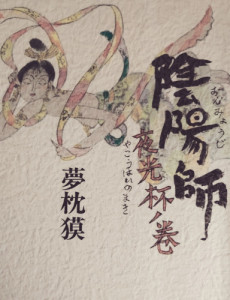 陰陽師
おんみょうじ
夜光杯ノ巻
やこうはいのまき
夢枕獏